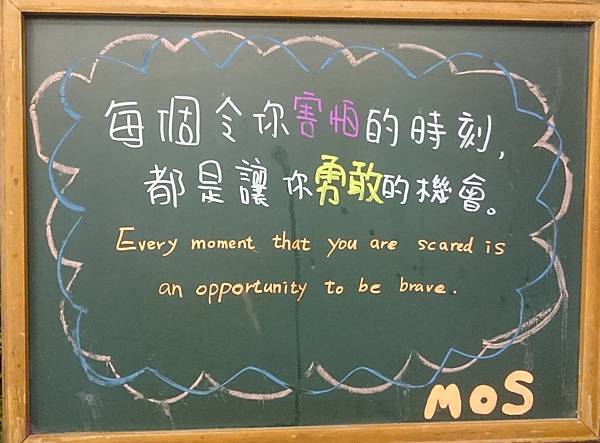 每個令你害怕的時刻,
都是讓你勇敢的機會。
Every moment that you are scared is
an opportunity to be brave.
MOS